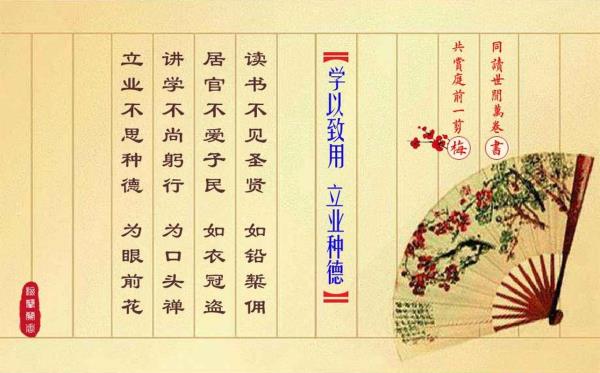 同讀世間萬卷書
共賞庭前一剪梅
【学以致用 立业种德】
读书不见圣贤 如铅椠佣
居官不爱子民 如衣冠盗
讲学不尚躬行 为口头禅
立业不思种德 为眼前花